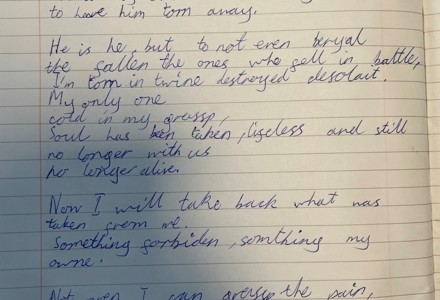 to have him torn away.
He is he, but to not even beryal
the fallen the ones who fell in battle,
I'm torn in twine destroyed desolait.
My only one
cold in my grassp,
Soul has been taken, ligeless and still
no longer with us
no longer alive.
Now I will take back what was
taken from me.
Something forbiden, somthing my
owne.
Not even I can grassp the pain,